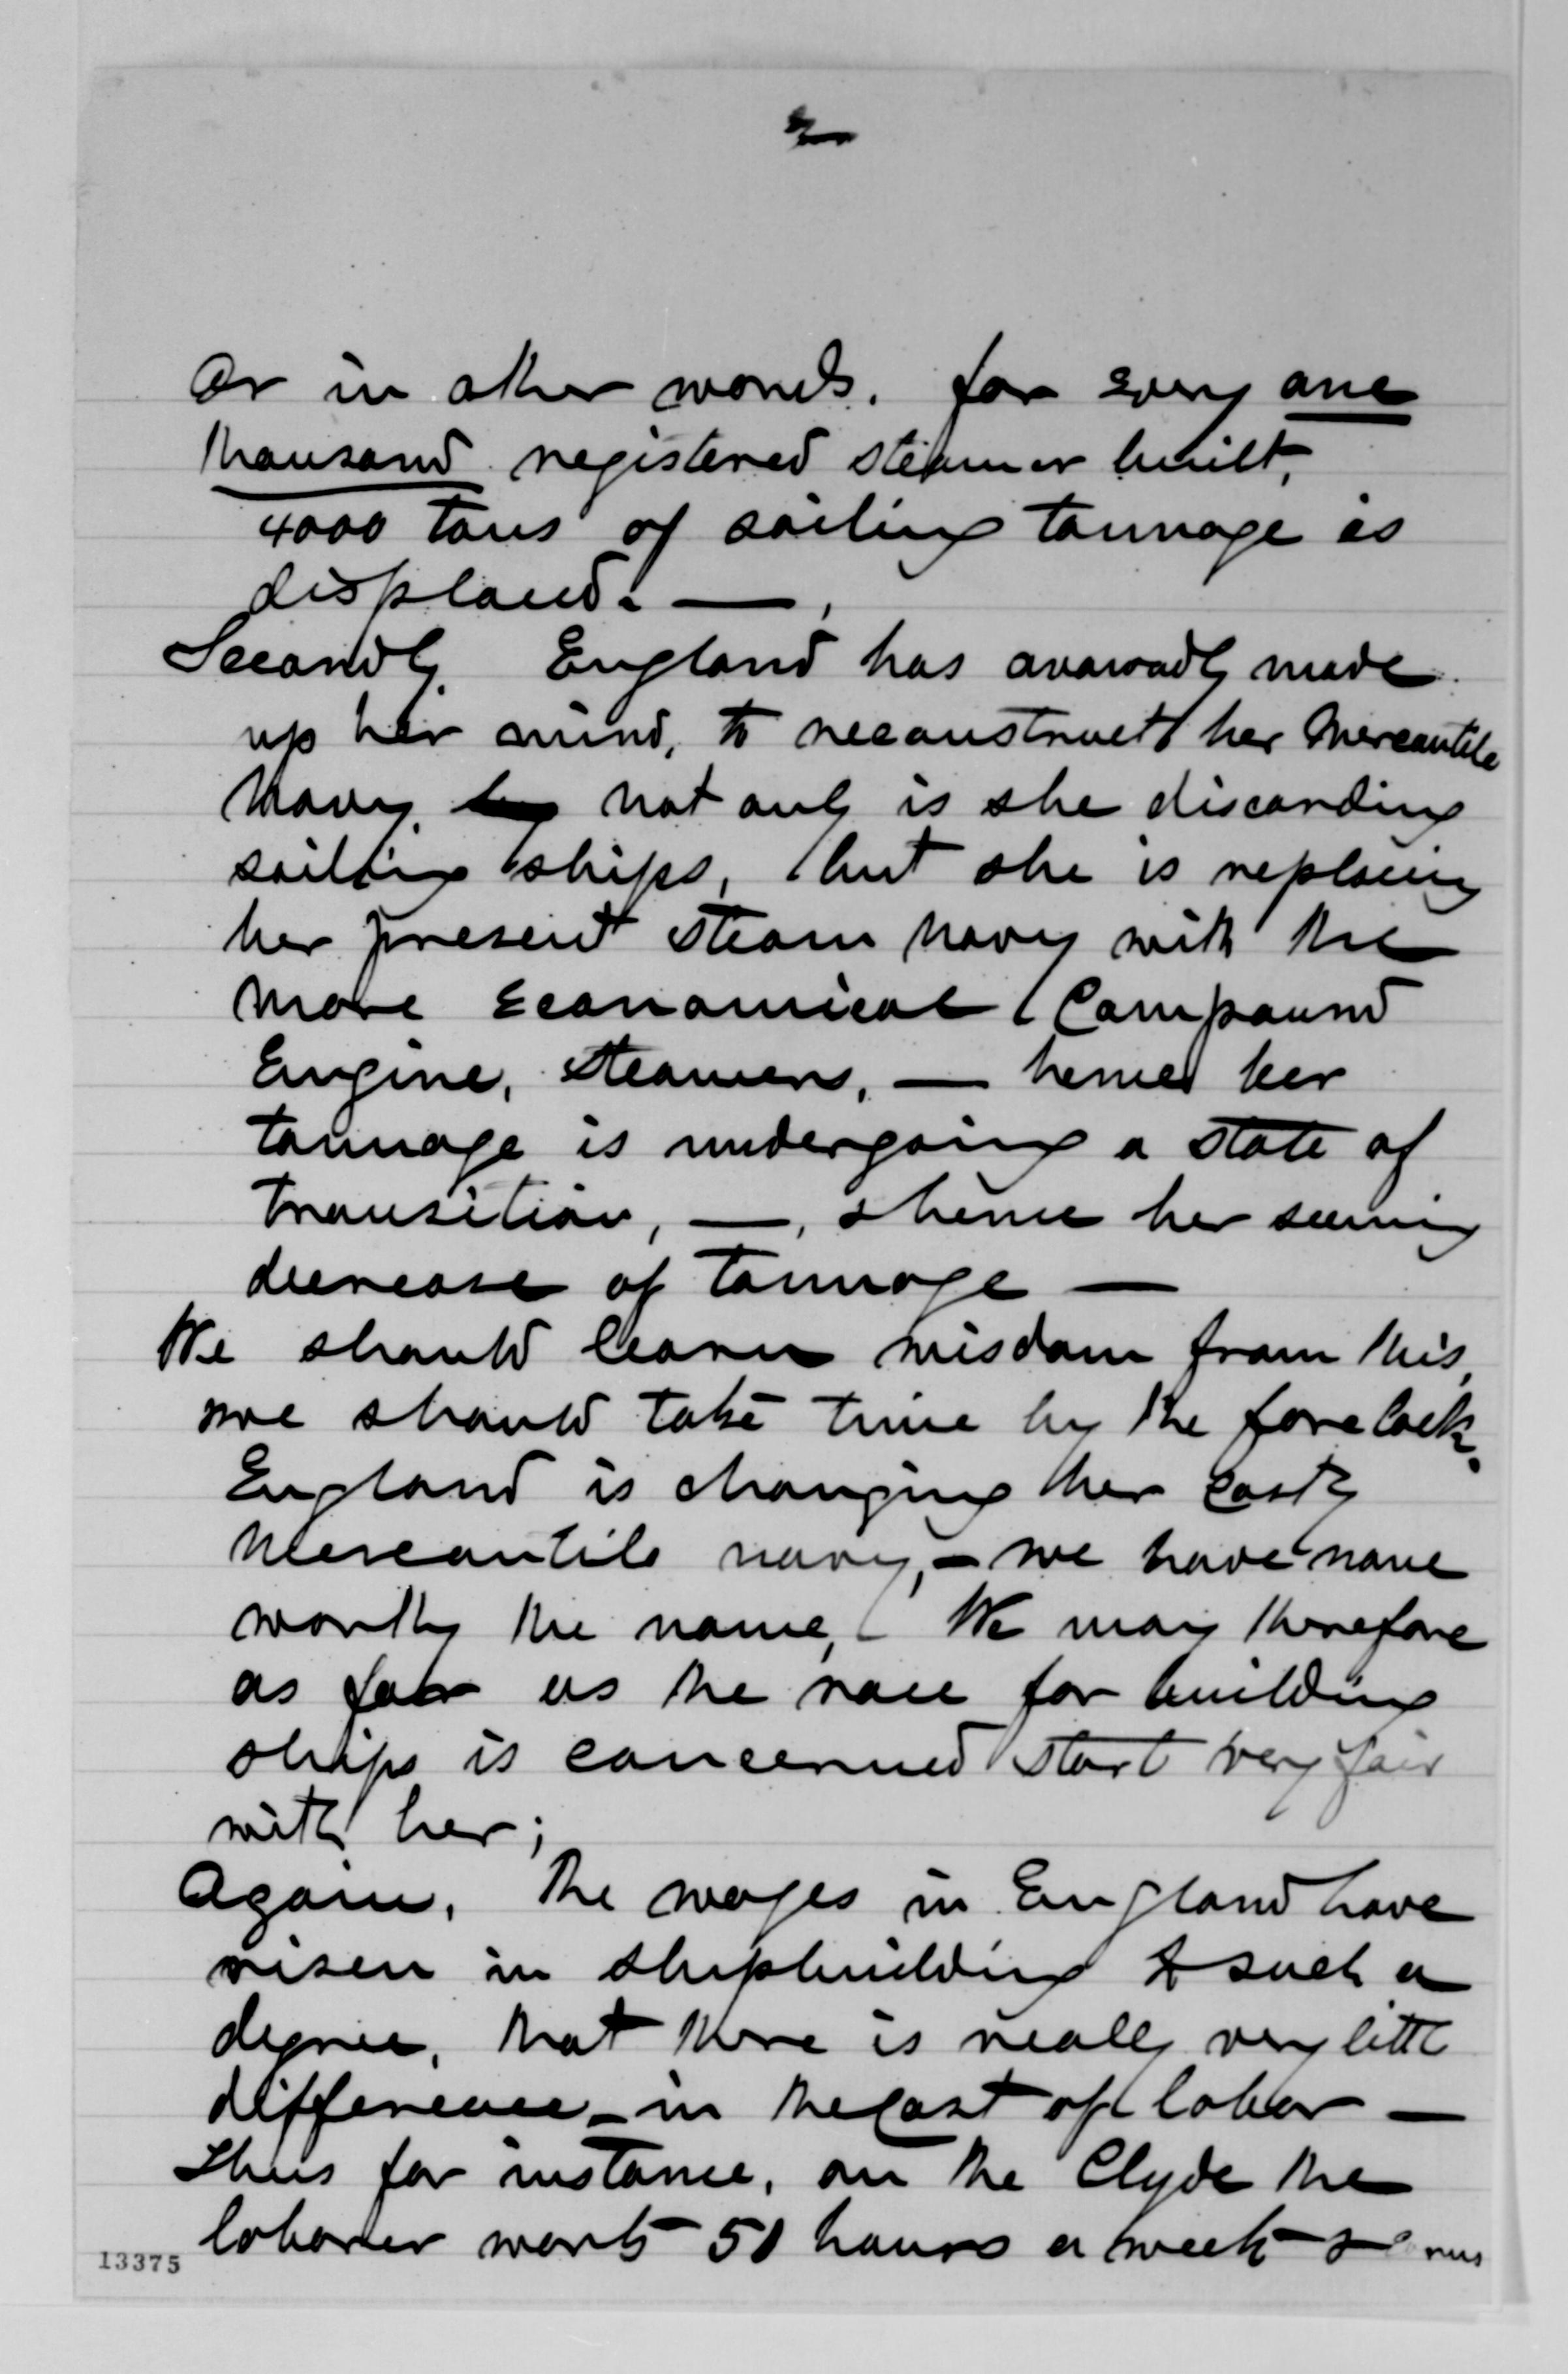 2
Or in other words. for every one
thousand registered steamer built,
4000 tons of sailing tonnage is
displaced. —,
Secondly. England has avowedly made
up her mind, to reconstruct her Mercantile
Navy. not only is she discarding
sailing ships, but she is replacing
her present steam navy with the
more Economical Compound
Engine, steamers, — hence her
tonnage is undergoing a state of
transition, —, & hence her seeming
decrease of tonnage —
We should learn wisdom from this,
we should take time by the forelock.
England is changing her costly
Mercantile navy, – we have none
worthy the name, We may therefore
as far as the race for building
ships is concerned start very fair
with her;
Again, The wages in England have
risen in shipbuilding to such a
degree, that there is really very little
difference – in the cost of labor —
Thus for instance, on the Clyde the
laborer works 51 hours a week &
13375